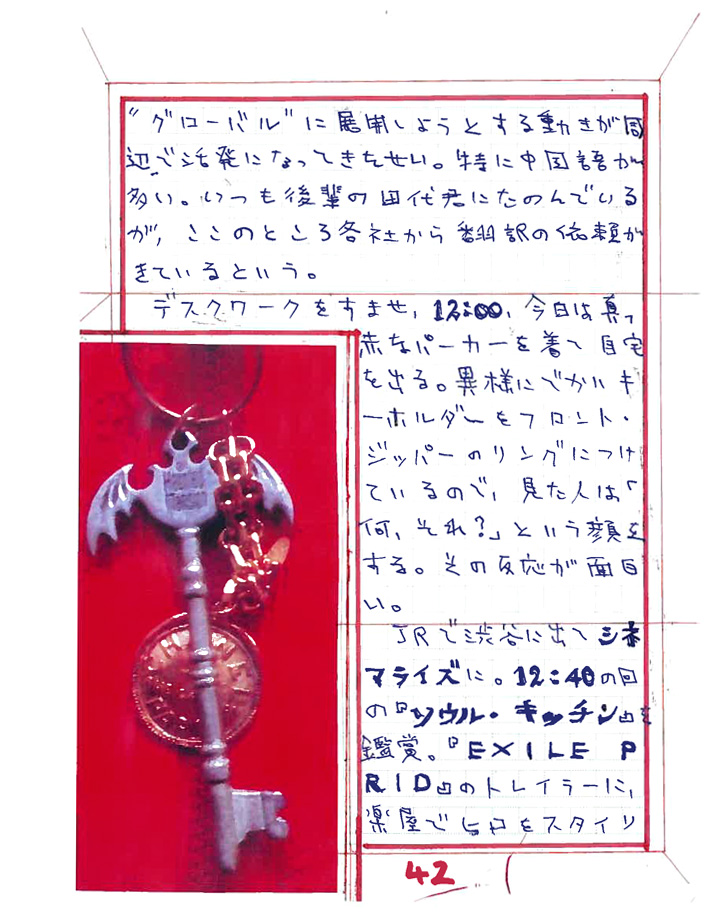 “グローバル”に展開しようとする動きが周
辺で活発になってきたせい。特に中国語が
多い。いつも後輩の田代君にたのんでいる
が、ここのところ各社から翻訳の依頼が
きているという。
デスクワークをすませ、12:00、今日は真っ
赤なパーカーを着て自宅
を出る。異様にでかいキ
ーホルダーをフロント・
ジッパーのリングにつけ
ているので、見た人は「
何、それ?」という顔を
する。その反応が面白
い。
JRで渋谷に出てシネ
マライズに。12:40の回
の『ソウル・キッチン』を
鑑賞。『EXILE P
RID』のトレイラーに、
楽屋でヒロをスタイリ
42